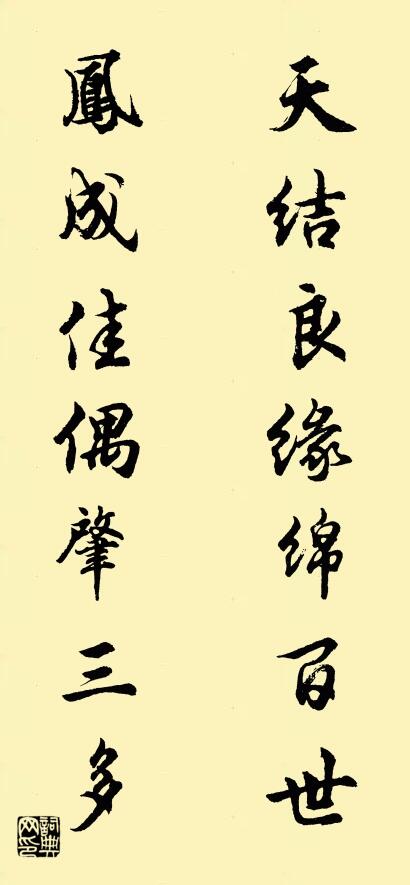 天结良缘绵百世
鳳成佳偶肇三多
詞典网印